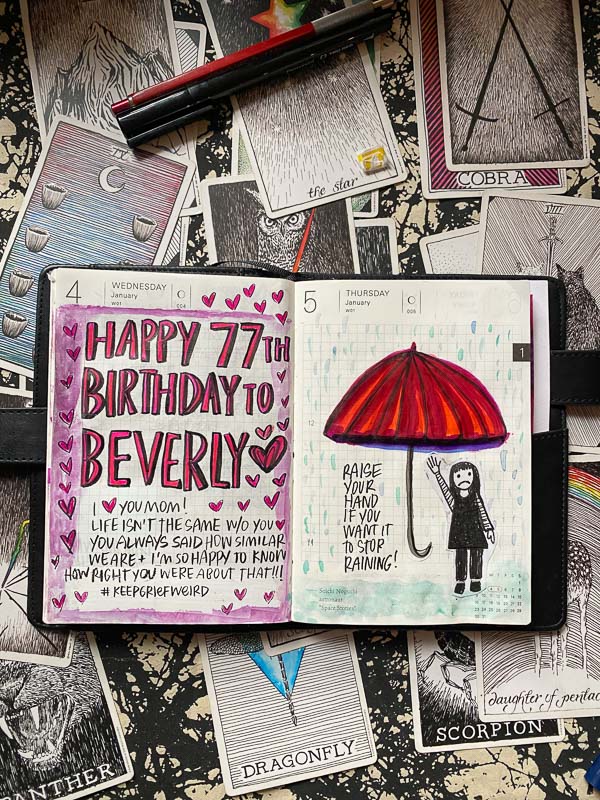 the star
COBRA
4
WEDNESDAY
January
W01
004
HAPPY 77TH
BIRTHDAY TO
BEVERLY
I YOU MOM!
LIFE ISN'T THE SAME W/O YOU
YOU ALWAYS SAID HOW SIMILAR
WE ARE + I'M SO HAPPY TO KNOW
HOW RIGHT YOU WERE ABOUT THAT!!!
#KEEPGRIEFWEIRD
5
THURSDAY
January
W01
005
1
12
RAISE
YOUR
HAND
IF YOU
WANT IT
TO STOP
RAINING!
Soichi Noguchi
astronaut
"Space Stories"
PANTHER
DRAGONFLY
SCORPION
daughter of pentac